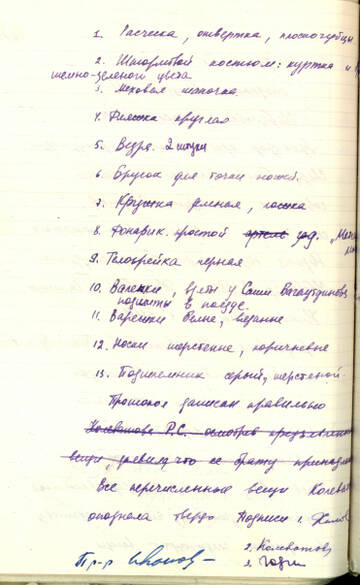 1. Расческа, отвертка, плоскогубцы
2. Штормовой костюм: куртка и
темно-зеленого цвета
3. Меховая шапочка
4. Фляжка круглая
5. Ведра 2 штуки
6. Брусок для точки ножей.
7. Кружка темная, ложка
8. Фонарик простой зав. „
9. Телогрейка черная
10. Валенки, взяты у Саши
подшиты в поезде.
11. Варежки белые, вязание
12. Носки шерстяные, коричневые
13. Подшлемник серый, шерстяной
Протокол записан правильно
Колеватова Р.С. осмотрев
вещи, что ее брату
Все перечисленные вещи
опознала твердо Подписи 1.
2. Колеватов
Пр-р Иванов 3. Годин